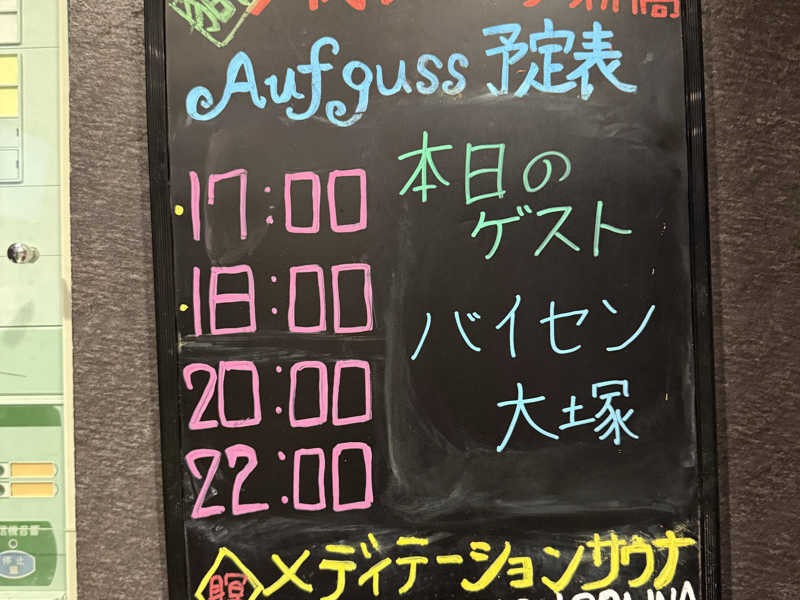 Aufguss 予定表
17:00
18:00
20:00
22:00
本日の
ゲスト
バイセン
大塚
瞑 メディテーションサウナ
停止